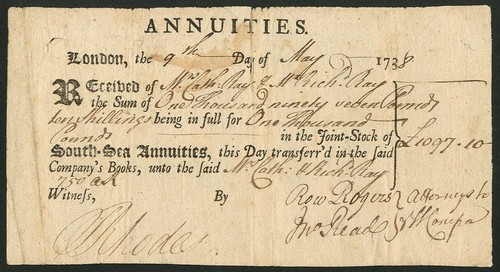 ANNUITIES.
London, the 9th Day of May 1738
REceived of Mrs Cath: Ray & Mr Rich: Ray
the Sum of One Thousand ninety seven Pounds
ten Shillings being in full for One Thousand
Pounds in the Joint-Stock of £1097.10
South-Sea Annuities, this Day transferr'd in the said
Company's Books, unto the said Mrs Cath: & Rich: Ray
Witness, By Row Rogers Attorneys to
Jno Read
Rhodes